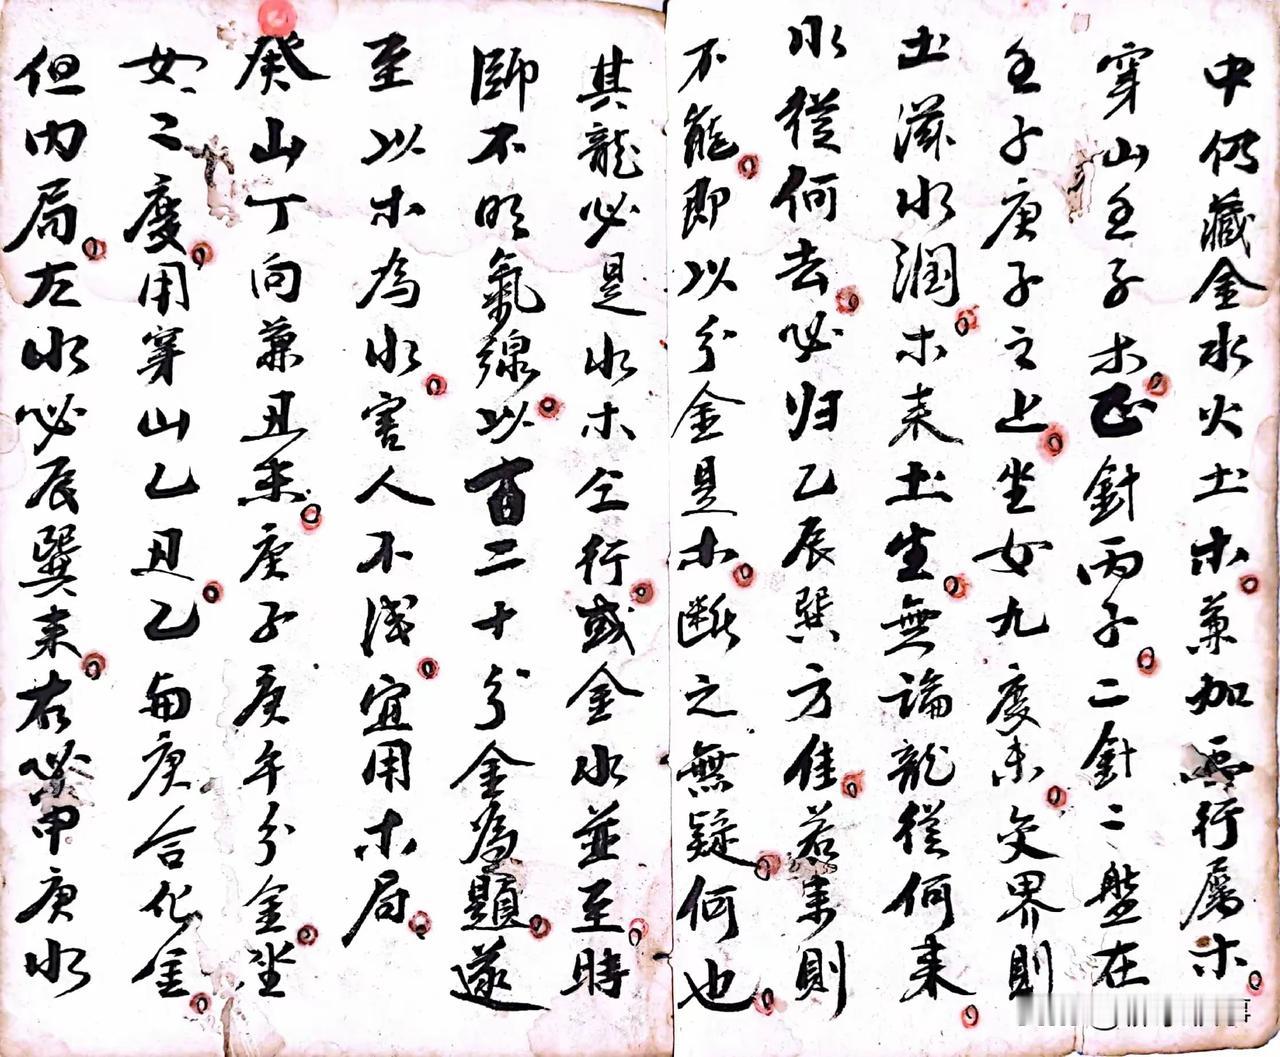 中仍藏金水火土木兼加五行属木
穿山壬子木正針丙子二針二盤在
壬子庚子之上坐女九度未交界則
土滋水潤木来土生無論龍從何来
水從何去必归乙辰巽方佳若未則
不能即以分金是木断之無疑何也
其龍必是水木仝行或金水並至時
師不明氣線以百二十分金為題遂
至以木為水害人不浅宜用木局
癸山丁向兼丑未庚子庚午分金坐
女二度用穿山乙丑乙与庚合化金
但内局左水必辰巽来右必甲庚水